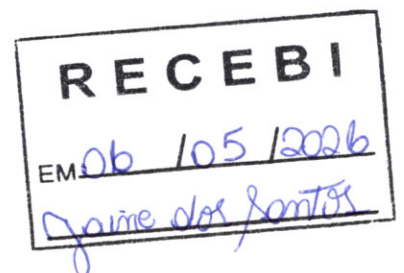 RECEBI
EM 06 /05 /2026
Jaime dos Santos